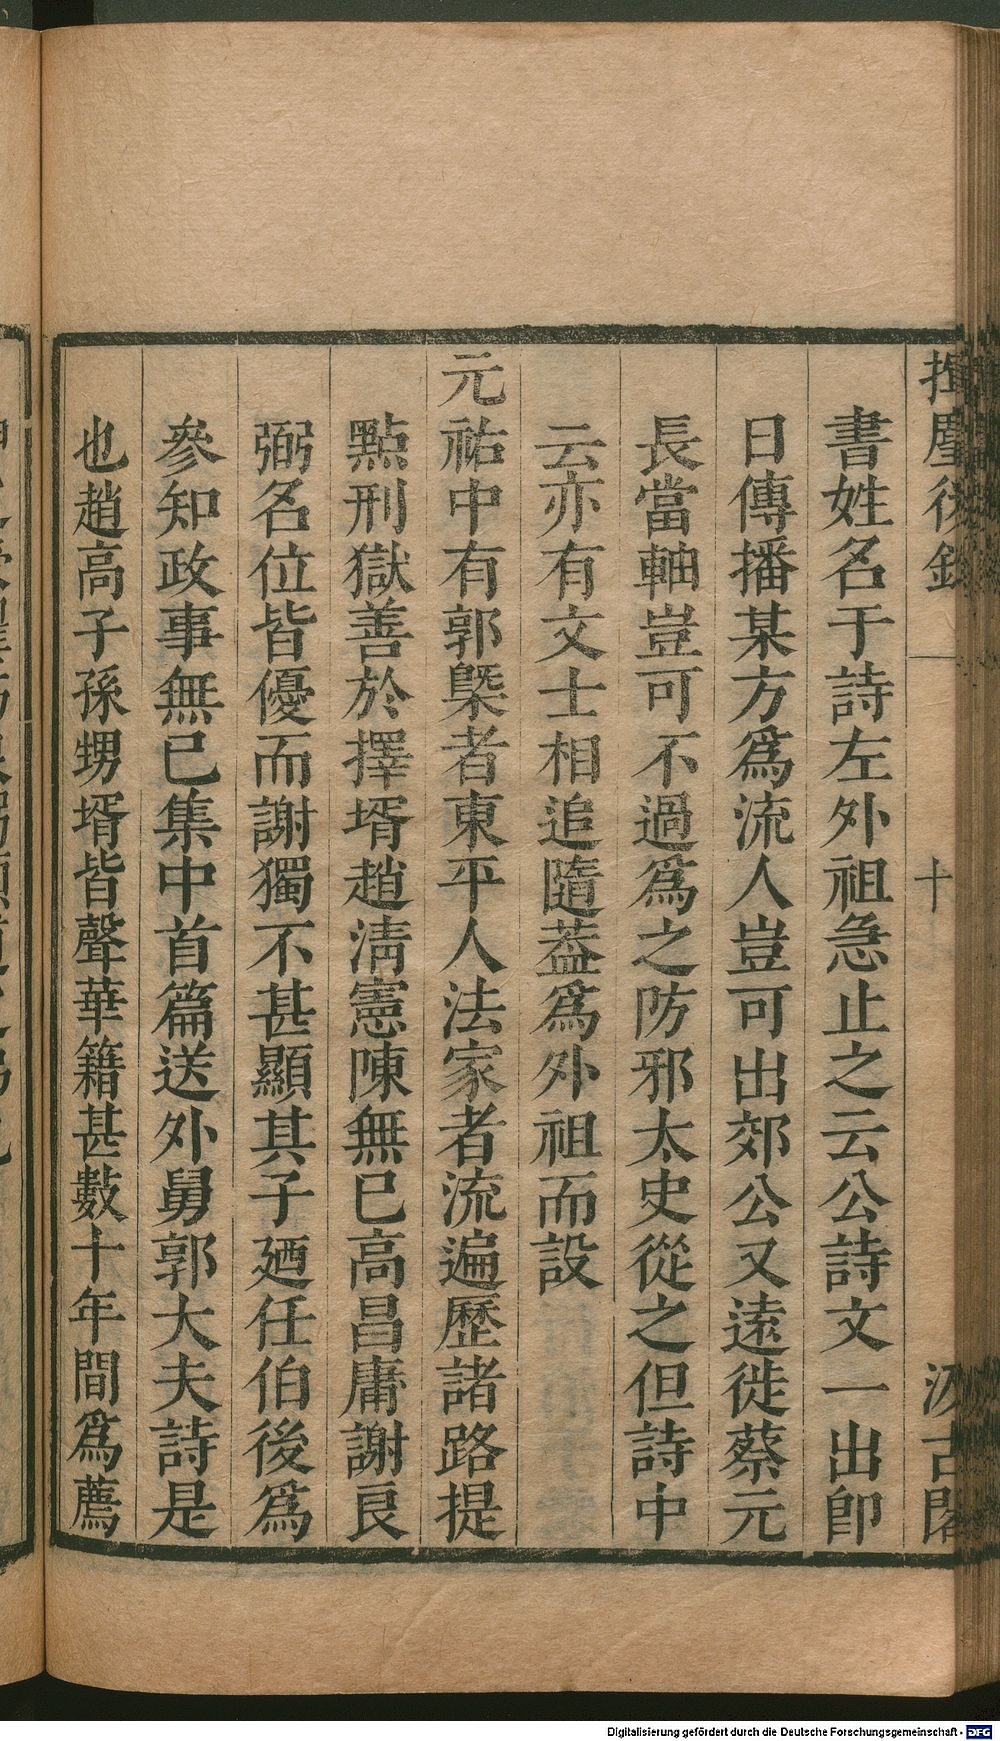 揮麈後錄
十
汲古閣
書姓名于詩左外祖急止之云公詩文一出卽
日傳播某方爲流人豈可出郊公又遠徙蔡元
長當軸豈可不過爲之防邪太史從之但詩中
云亦有文士相追隨葢爲外祖而設
元祐中有郭槩者東平人法家者流遍歷諸路提
點刑獄善於擇壻趙淸憲陳無已高昌庸謝良
弼名位皆優而謝獨不甚顯其子廼任伯後爲
參知政事無已集中首篇送外舅郭大夫詩是
也趙高子孫甥壻皆聲華籍甚數十年間爲薦
Digitalisierung gefördert durch die Deutsche Forschungsgemeinschaft - DFG